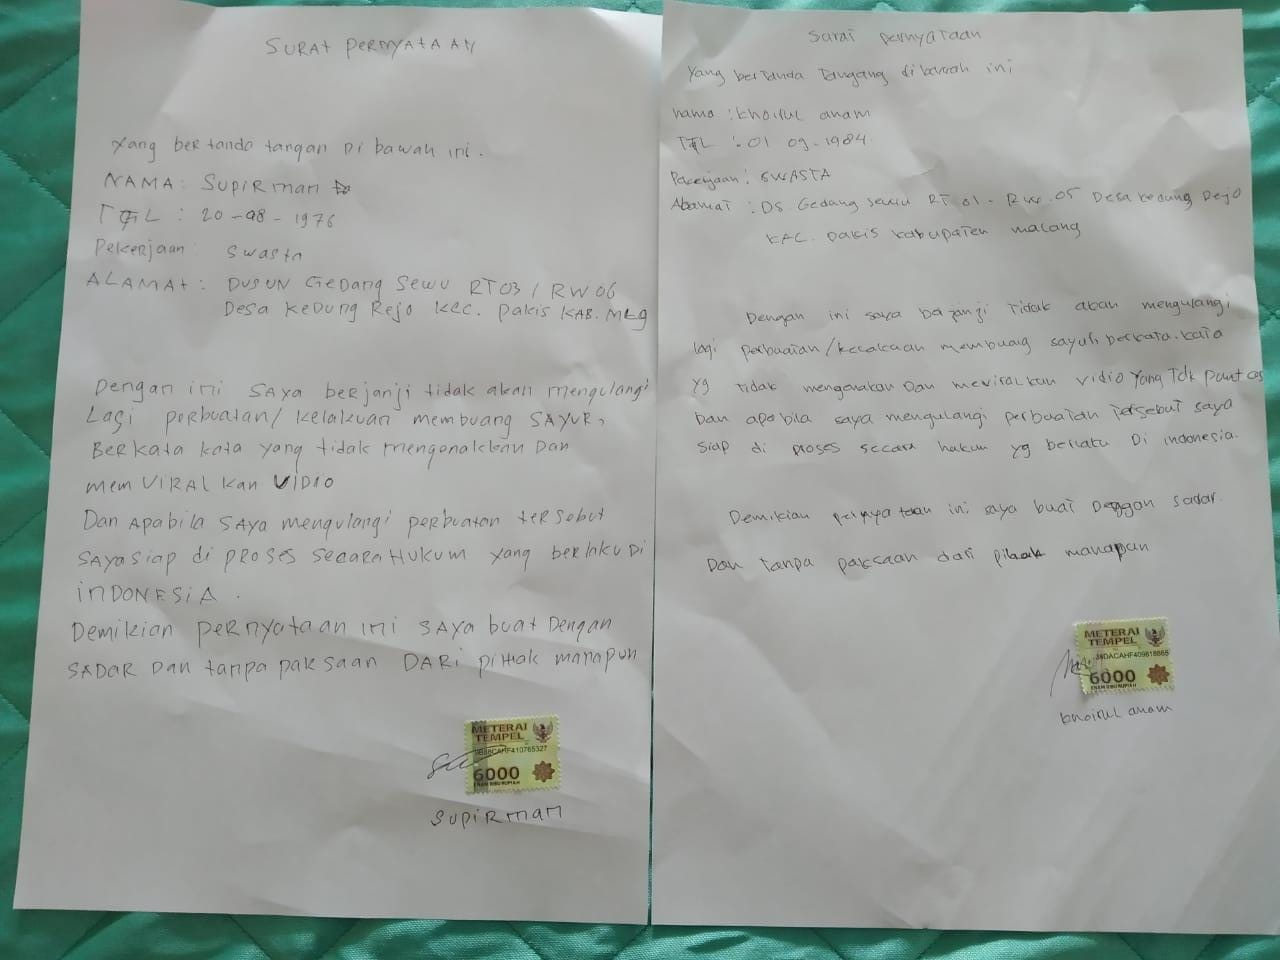 SURAT PERNYATAAN
Yang bertanda tangan Di bawah ini.
NAMA: SUPIRMAN
TGL : 20-08-1976
Pekerjaan: Swasta
ALAMAt: DUSUN GEDANG SEWU RT 03 / RW 06
Desa KEDUNG REJO KEC. PAKIS KAB. MLG
Dengan ini SAYA berjanji tidak akan mengulangi
Lagi perbuatan/kelakuan membuang SAYUR,
Berkata kata yang tidak mengenakkan Dan
memVIRALkan VIDIO
Dan Apabila SAYA mengulangi perbuatan tersebut
SAYA siap di PROSES SECARA HUKUM yang berlaku Di
INDONESIA.
Demikian PERNYATAAN ini SAYA buat Dengan
SADAR DAN tanpa paksaan DARI pihak manapun
METERAI
TEMPEL
6000
ENAM RIBU RUPIAH
SUPIRMAN
Surat pernyataan
Yang bertanda Tangang di bawah ini
nama : khoirul anam
TGL : 01 09-1984
Pekerjaan: SWASTA
Alamat : DS. Gedang sewu RT 01 - RW. 05 Desa kedung Rejo
KAC. pakis kabupaten malang
Dengan ini saya berjanji Tidak akan mengulangi
lagi perbuatan/kecakuan membuang sayur, berkata.kata
yg tidak mengenakan Dan meviralkan vidio yang Tdk pantas
Dan apabila saya mengulangi perbuatan Tersebut saya
Siap di proses secara hukum yg berlaku Di indonesia.
Demikian pernyataan ini saya buat Denggan sadar.
Dan tanpa paksaan dari pihak manapan
METERAI
TEMPEL
6000
ENAM RIBU RUPIAH
khoirul anam